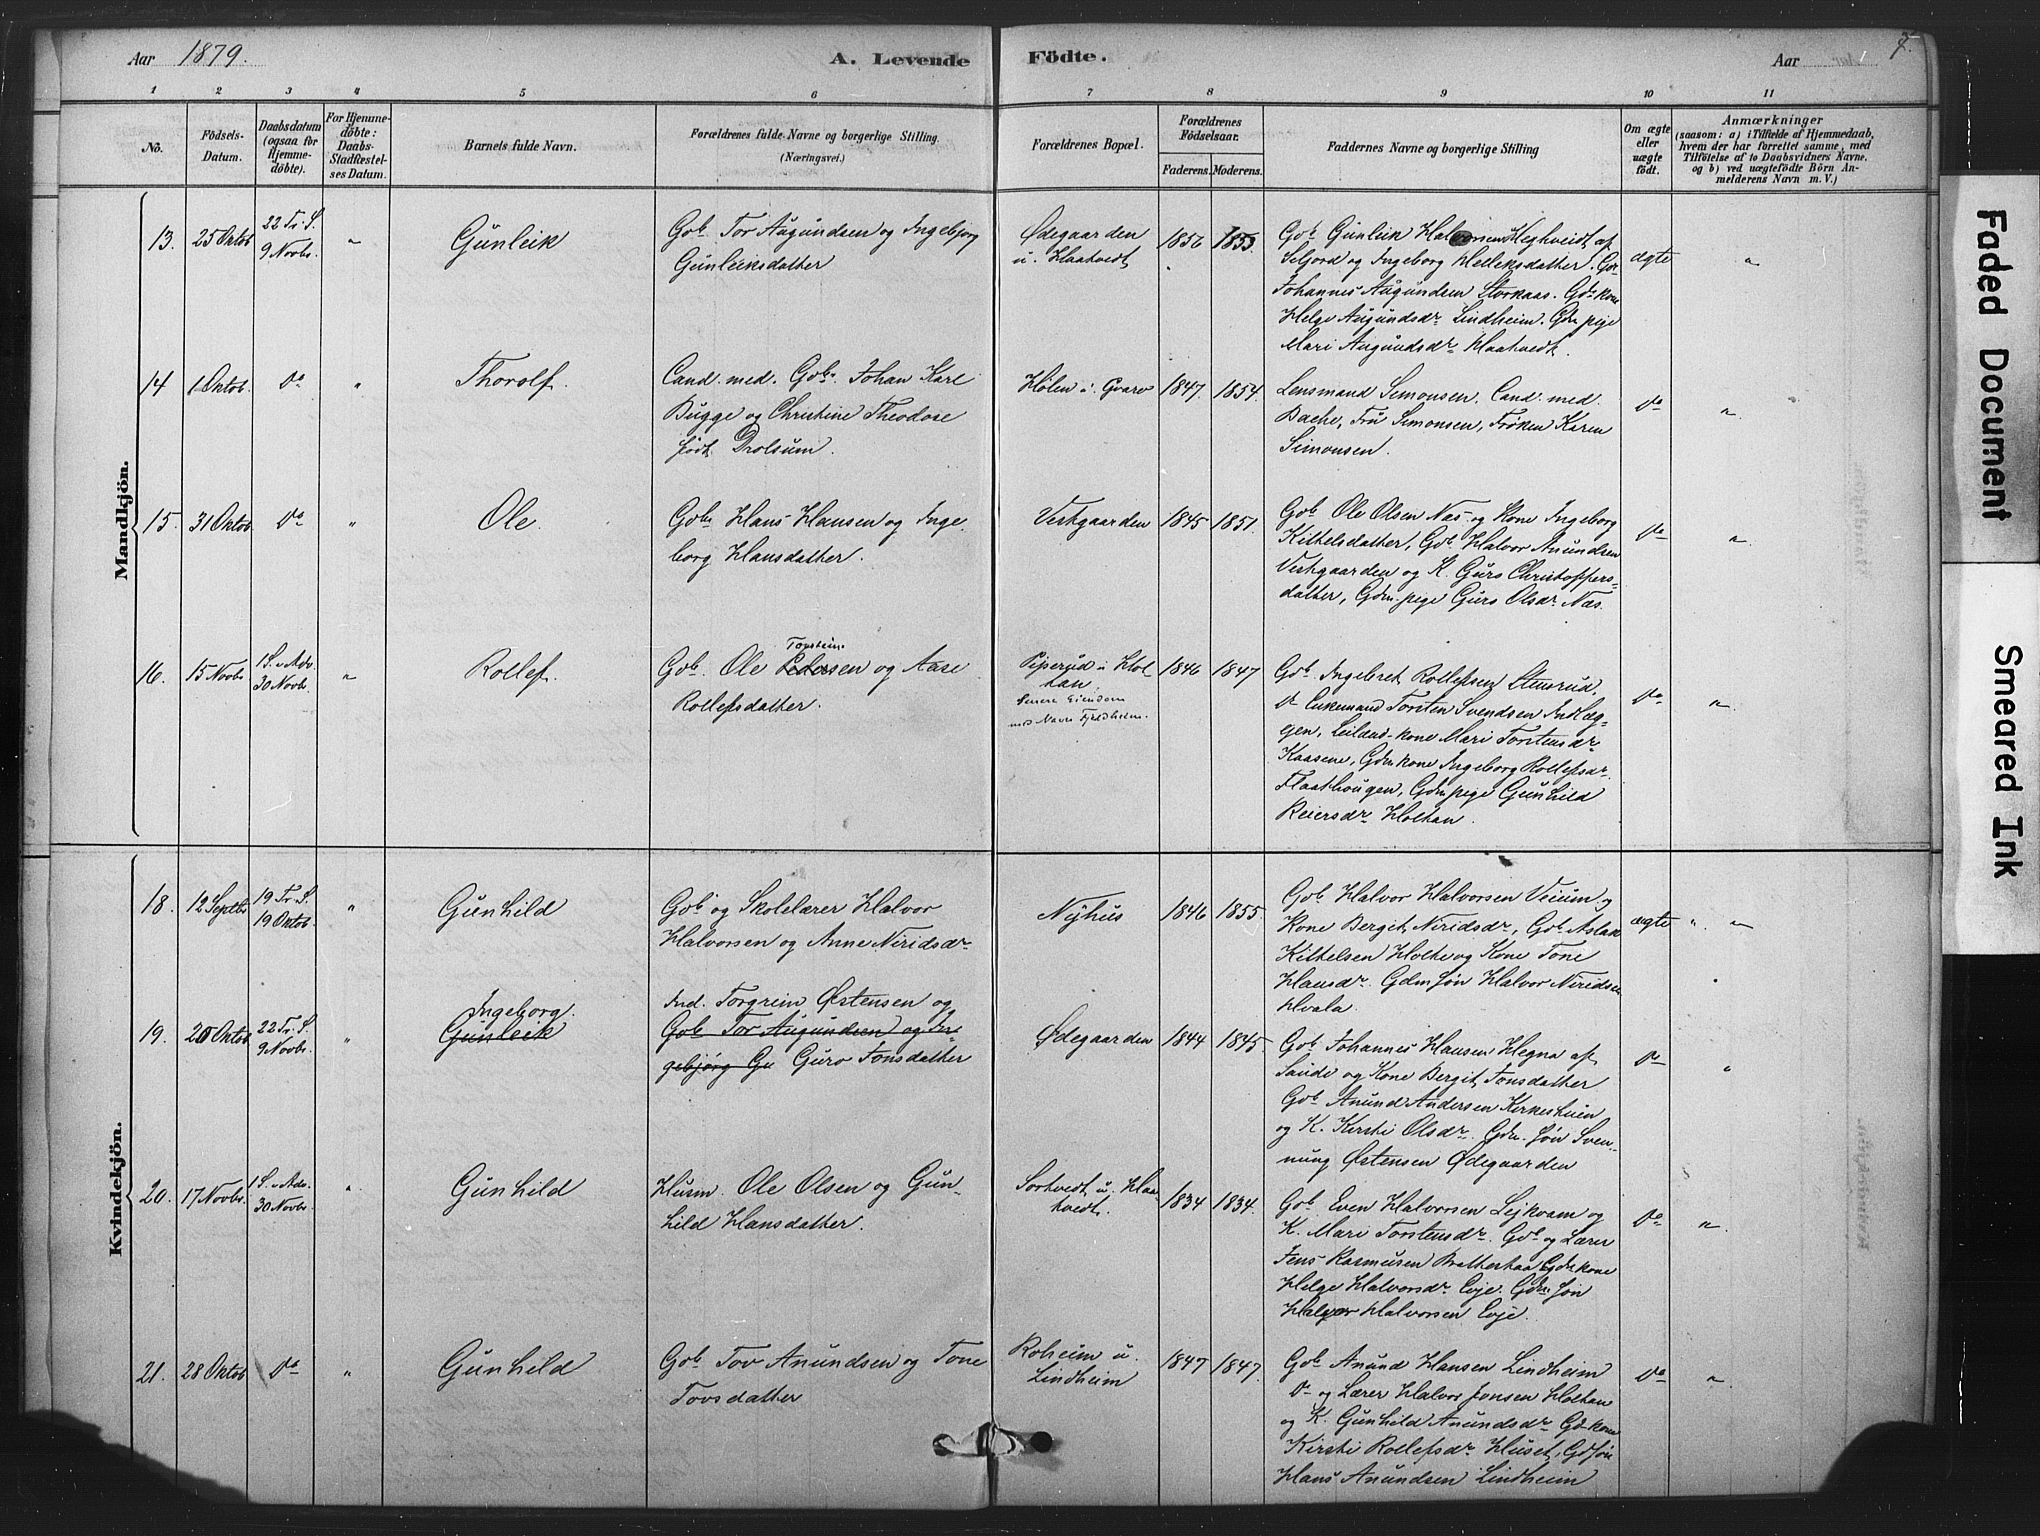 Aar 1879.
A. Levende Födte.
Aar
7.
1 2 3 4 5 6 7 8 9 10 11
No.
Födsels-Datum.
Daabsdatum (ogsaa for Hjemme-döbte).
For Hjemme-döbte: Daabs-Stadfæstel-ses Datum.
Barnets fulde Navn.
Forældrenes fulde Navne og borgerlige Stilling.
(Næringsvei.)
Forældrenes Bopæl.
Forældrenes Födselsaar.
Faderens. Moderens.
Faddernes Navne og borgerlige Stilling
Om ægte eller uægte födt.
Anmærkninger
(saasom: a) i Tilfælde af Hjemmedaab,
hvem der har forrettet samme, med
Tilföielse af to Daabsvidners Navne,
og b) ved uægtefödte Börn An-
melderens Navn m. V.)
Mandkjön.
13. 25 Oktob 22 Tr. S. 9 Novbr. " Gunleik
Gbr. Tor Augundsen og Ingebjorg
Gunleiksdatter
Ødegaarden
u. Haatvedt
1856 1853.
Gbr Gunleik Halvorsen Heghveidt af
Seljord og Ingeborg Helleksdatter. Gbr
Johannes Augundsen Storkaas. Gdkone
Helge Augundsdr Lindheim. Gdm pige
Mari Augundsdr Haatvedt.
ægte "
14 1 Oktob. Do " Thorolf.
Cand. med. Gbr. Johan Karl
Bugge og Christine Theodose
født Drolsum.
Holen u. Gvarv 1847. 1854.
Lensmand Simonsen. Cand. med.
Bache, Fru Simonsen, Frøken Karen
Simonsen.
Do "
15. 31 Oktob. Do " Ole.
Gbr Hans Hansen og Inge
borg Hansdatter.
Vestgaarden 1845 1851.
Gbr Ole Olsen Næs og Kone Ingeborg
Kittelsdatter, Gbr. Halvor Anundsen
Vestgaarden og K. Guro Christoffers-
datter, Gdm. pige Guro Olsdr Næs.
Do "
16. 15 Novbr 1 S. i Adv. 30 Novbr. " Rollef.
Torstein
Gbr. Ole Pedersen og Aase
Rollefsdatter.
Piperud u Hol-
tan
Senere Eiendom
med Navn Fjeldheim.
1846 1847
Gbr. Ingebret Rollefsen Stensrud,
Do Enkemand Torsten Svendsen Indlæg-
gen, Leilænd-kone Mari Torstensdr
Kaasene, Gdm kone Ingeborg Rollefsdr.
Flaathougen, Gdm pige Gunhild
Reiersdr Holtan.
Do "
Kvindekjön.
18. 12 Septbr 19 Tr. S. 19 Oktob. " Gunhild
Gbr og Skolelærer Halvor
Halvorsen og Anne Niridsdr
Nyhus 1846 1855.
Gbr Halvor Halvorsen Veium og
Kone Bergit Niridsdr, Gbr Aslak
Kittelsen Holte og Kone Tone
Hansdr. Gdm søn Halvor Niridsen
Hvala
ægte " "
19. 20 Oktob 22 Tr. S. 9 Novbr. "
Ingeborg.
Gunleik
Ind. Torgrim Østensen og
Gbr Tor Augundsen og In-
gebjørg Gu Guro Jonsdatter
Ødegaarden 1844 1845.
Gbr Johannes Hansen Hegna af
Saude og Kone Bergit Jonsdatter
Gbr Anund Andersen Kirkeshuien
og K. Kirsti Olsdr. Gdm. søn Sven-
nung Østensen Ødegaarden
Do "
20. 17 Novbr. 1 S. i Adv. 30 Novbr. " Gunhild
Husm. Ole Olsen og Gun-
hild Hansdatter.
Sortvedt u. Haa-
tvedt.
1834 1834.
Gbr. Even Halvorsen Lejkvam og
K. Mari Torstensdr. Gbr og Lærer
Jens Rasmusen Bratterhaa Gdm kone
Helge Halvorsdr Evje. Gdm. søn
Halvor Halvorsen Evje.
Do "
21. 28 Oktob Do " Gunhild
Gbr. Tov Anundsen og Tone
Tovsdatter
Roheim u.
Lindheim
1847 1847.
Gbr Anund Hansen Lindheim
Do og Lærer Halvor Jonsen Holtan
og K. Gunhild Anundsdr Gdkone
Kirsti Rollefsdr Huset, Gd søn
Hans Anundsen Lindheim
Do "
Faded Document
Smeared Ink